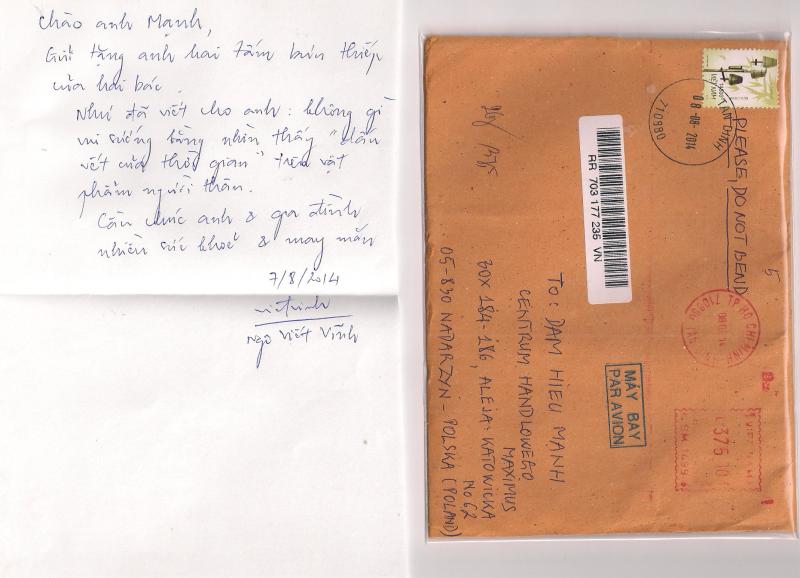 Chào anh Mạnh,
Gửi tặng anh hai tấm bưu thiếp
của hai bác.
Như đã viết cho anh: không gì
vui sướng bằng nhìn thấy "dấu
vết của thời gian" trên vật
phẩm người thân.
Cầu chúc anh & gia đình
nhiều sức khoẻ & may mắn
7/8/2014
Ngô Viết Vĩnh
TÂN ĐỊNH
08-08-2014
710980
PLEASE, DO NOT BEND
5
RR 703 177 235 VN
TP HO CHI MINH
MÁY BAY
PAR AVION
375 10
TO: DAM HIEU MANH
CENTRUM HANDLOWEGO
MAXIMUS
BOX 184-186, ALEJA: KATOWICKA
No 62
05-830 NADARZYN - POLSKA (POLAND)